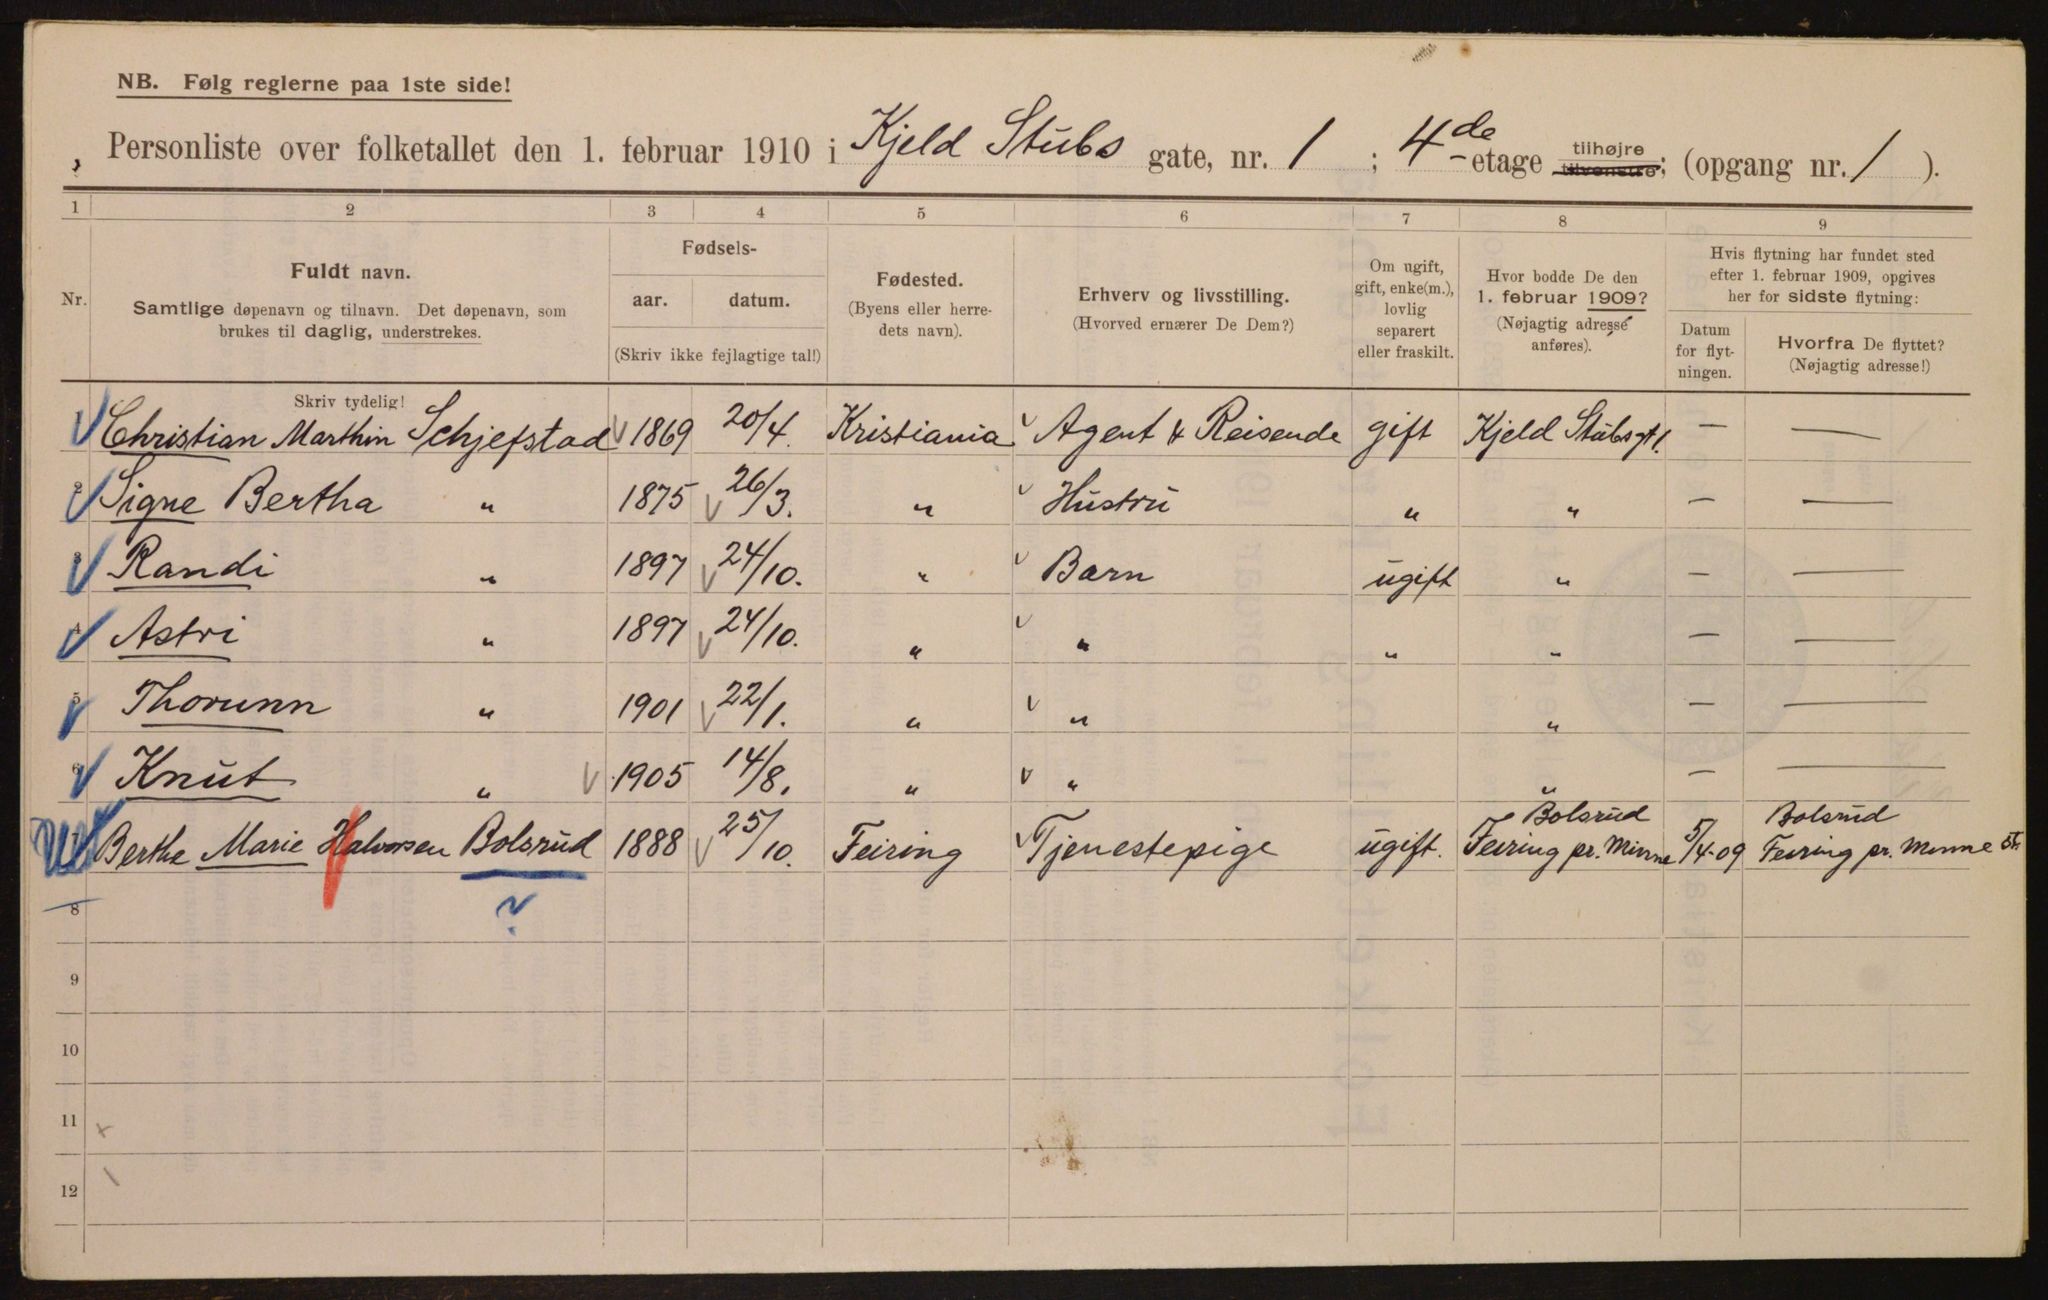 NB. Følg reglerne paa 1ste side!
Personliste over folketallet den 1. februar 1910 i Kjeld Stubs gate, nr. 1 ; 4de etage tilhøjre tilvenstre; (opgang nr. 1 ).
1 2 3 4 5 6 7 8 9
Nr.
Fuldt navn.
Samtlige døpenavn og tilnavn. Det døpenavn, som
brukes til daglig, understrekes.
Skriv tydelig!
Fødsels-
aar. datum.
(Skriv ikke fejlagtige tal!)
Fødested.
(Byens eller herre-
dets navn).
Erhverv og livsstilling.
(Hvorved ernærer De Dem?)
Om ugift,
gift, enke(m.),
lovlig
separert
eller fraskilt.
Hvor bodde De den
1. februar 1909?
(Nøjagtig adresse
anføres).
Hvis flytning har fundet sted
efter 1. februar 1909, opgives
her for sidste flytning:
Datum
for flyt-
ningen.
Hvorfra De flyttet?
(Nøjagtig adresse!)
Christian Marthin Schjefstad 1869 20/4. Kristiania Agent & Reisende gift Kjeld Stubsgt 1. — —
2 Signe Bertha " 1875 26/3. " Hustru " " — —
3 Randi " 1897 24/10. " Barn ugift " — —
4 Astri " 1897 24/10. " " " " — —
5 Thorunn " 1901 22/1. " " " — —
6 Knut " 1905 14/8. " " " — —
Berthe Marie Halvorsen Bolsrud 1888 25/10. Feiring Tjenestepige ugift. Bolsrud Feiring pr. Minne 5/4-09 Bolsrud Feiring pr. Minne St.
8 ?
9
10
11
12